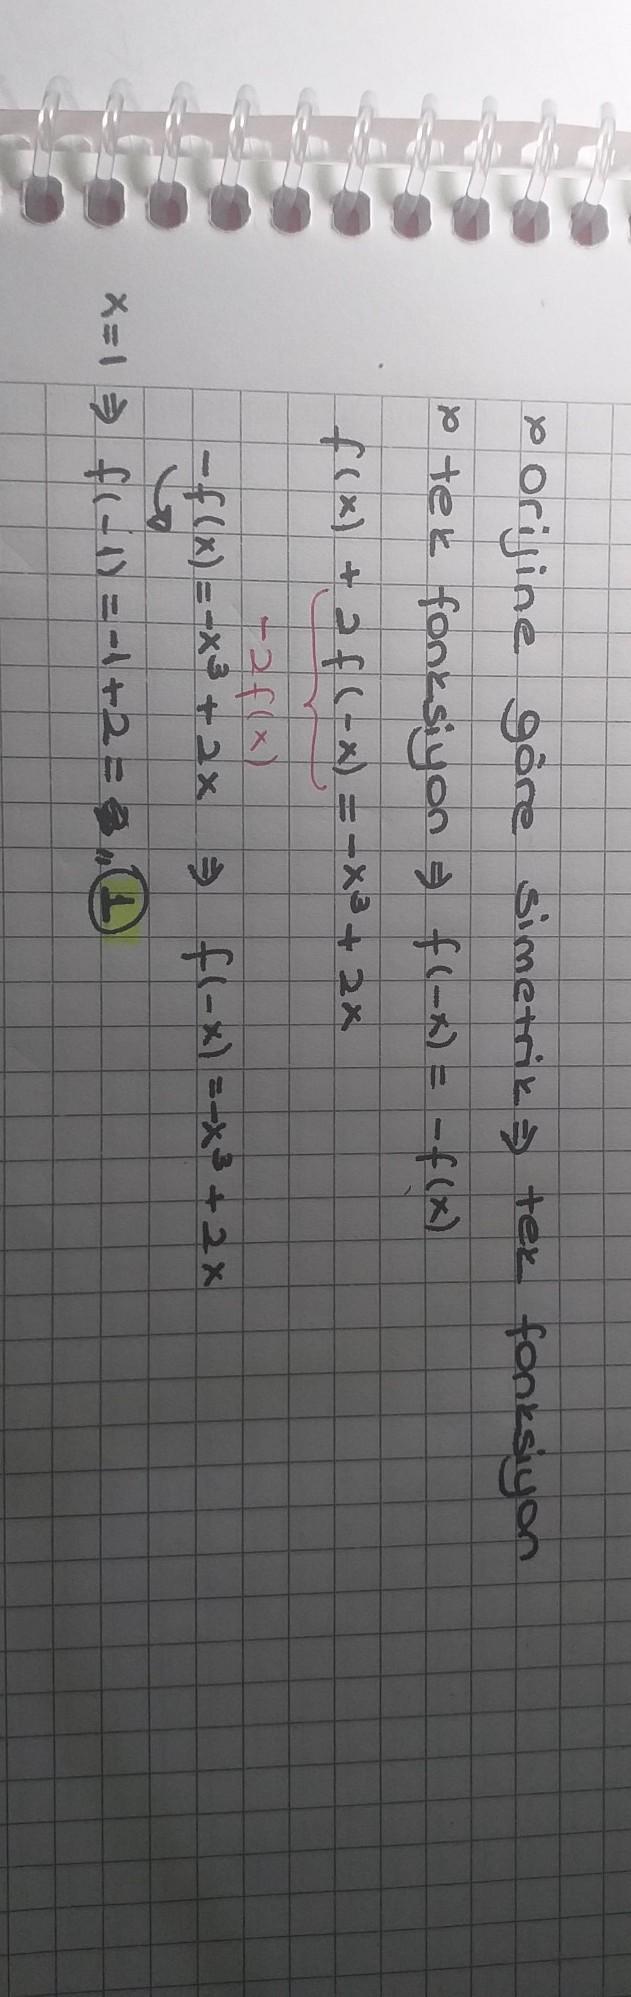 * Orijine göre simetrik ⇒ tek fonksiyon
* tek fonksiyon ⇒ f(-x) = -f(x)
f(x) + 2f(-x) = -x³ + 2x
-2f(x)
-f(x) = -x³ + 2x ⇒ f(-x) = -x³ + 2x
x=1 ⇒ f(-1) = -1+2 = 1